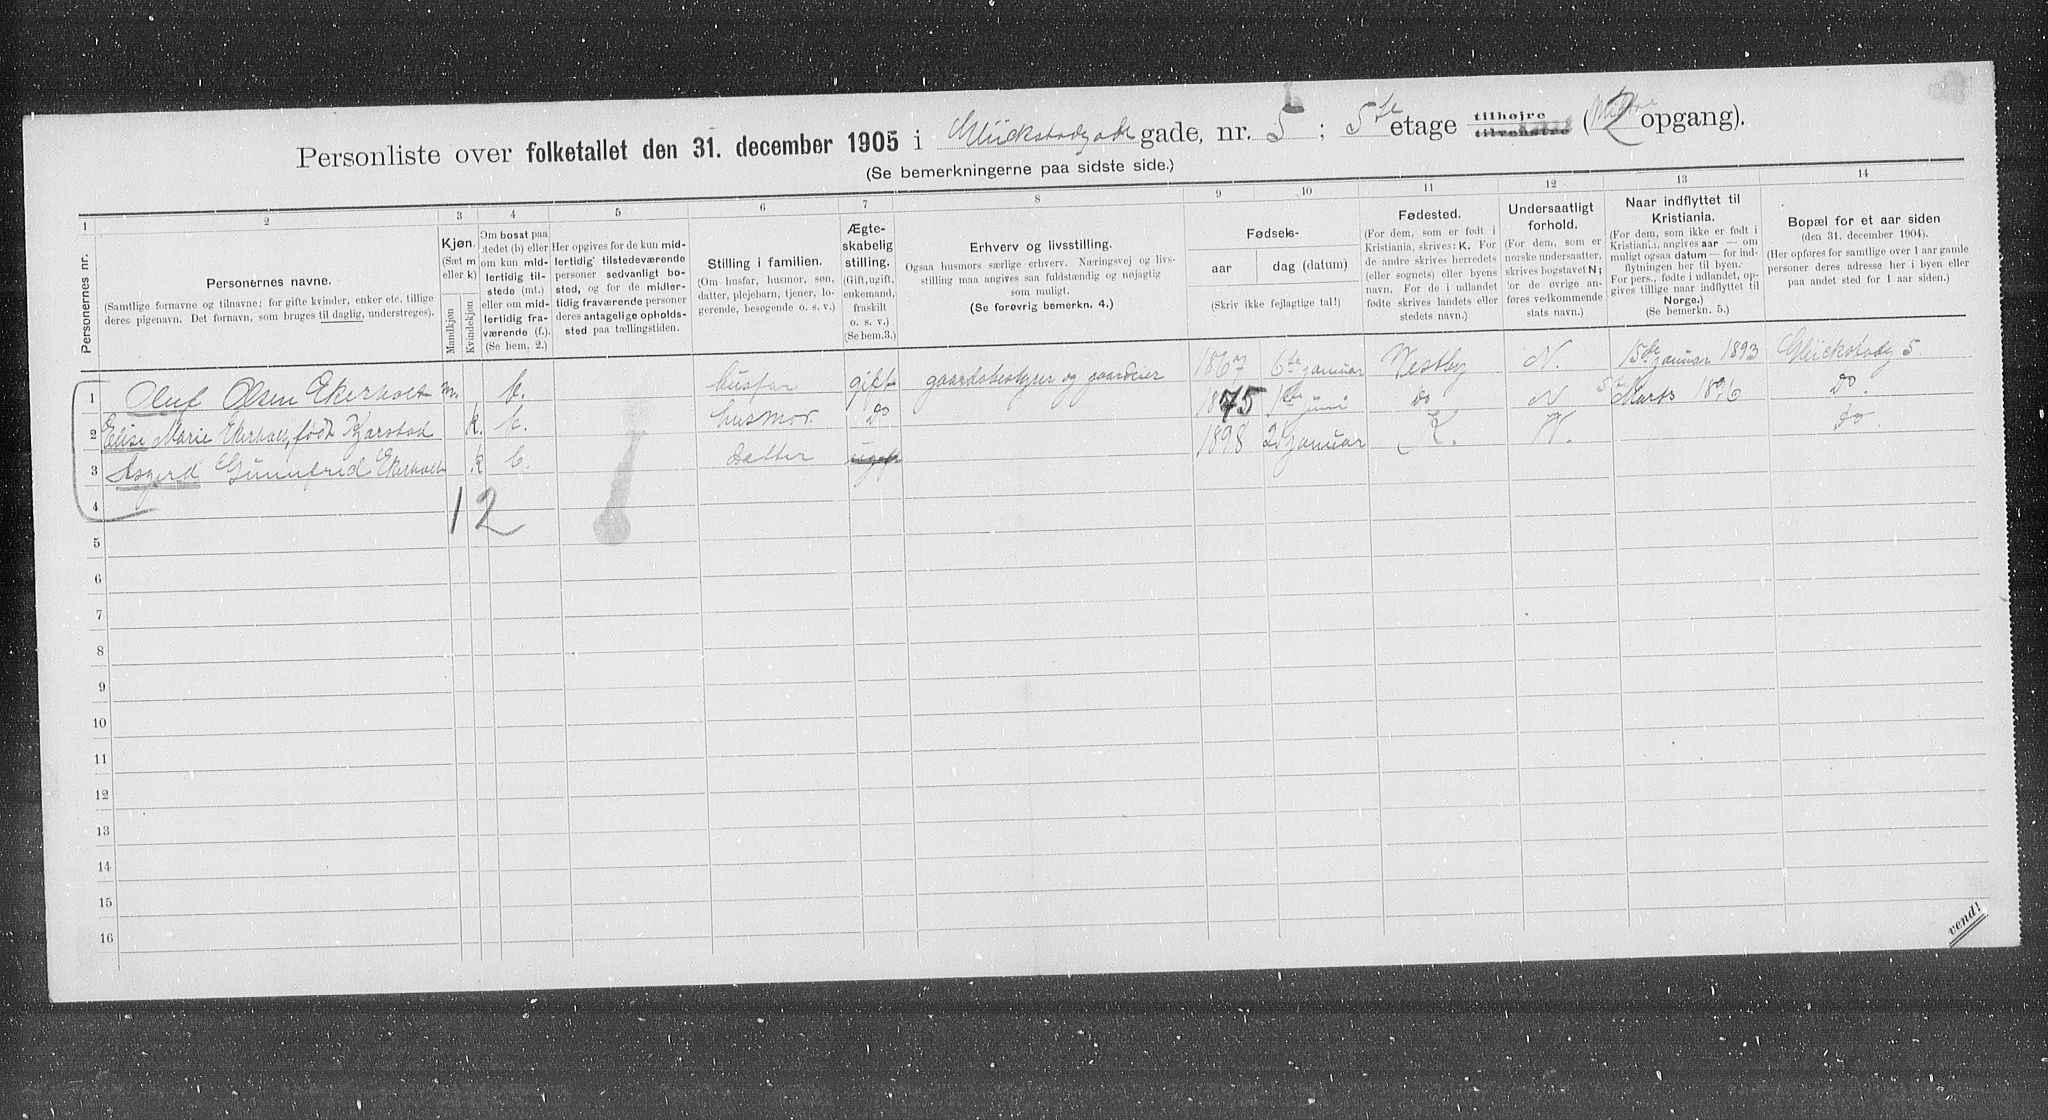 Personliste over folketallet den 31. december 1905 i Glückstadsgade gade, nr. 5 ; 5te etage tilhøjre tilvenstre ( 2 opgang).
(Se bemerkningerne paa sidste side.)
1 2 3 4 5 6 7 8 9 10 11 12 13 14
Personernes nr.
Personernes navne.
(Samtlige fornavne og tilnavne; for gifte kvinder, enker etc. tillige
deres pigenavn. Det fornavn, som bruges til daglig, understreges).
Kjøn.
(Sæt m
eller k)
Mandkjøn
Kvindekjøn
Om bosat paa
stedet (b) eller
om kun mid-
lertidig til-
stede (mt.)
eller om mid-
lertidig fra-
værende (f.).
(Se bem. 2.)
Her opgives for de kun mid-
lertidig tilstedeværende
personer sedvanligt bo-
sted, og for de midler-
tidig fraværende personer
deres antagelige opholds-
sted paa tællingstiden.
Stilling i familien.
(Om husfar, husmor, søn,
datter, plejebarn, tjener, lo-
gerende, besøgende o. s. v.)
Ægte-
skabelig
stilling.
(Gift, ugift,
enkemand,
fraskilt
o. s. v.)
(Se bem.3.)
Erhverv og livsstilling.
Ogsaa husmors særlige erhverv. Næringsvej og livs-
stilling maa angives saa fuldstændig og nøjagtig
som muligt.
(Se forøvrig bemerkn. 4.)
Fødsels-
aar dag (datum)
(Skriv ikke fejlagtige tal!)
Fødested.
(For dem, som er født i
Kristiania, skrives: K. For
de andre skrives herredets
(eller sognets) eller byens
navn. For de i udlandet
fødte skrives landets eller
stedets navn.)
Undersaatligt
forhold.
(For dem, som er
norske undersaatter,
skrives bogstavet N;
for de øvrige an-
føres vedkommende
stats navn.)
Naar indflyttet til
Kristiania.
(For dem, som ikke er født i
Kristiania, angives aar — om
muligt ogsaa datum — for ind-
flytningen her til byen.
For pers., fødte i udlandet, op-
gives tillige naar indflyttet til
Norge.)
(Se bemerkn. 5.)
Bopæl for et aar siden
(den 31. december 1904).
(Her opføres for samtlige over 1 aar gamle
personer deres adresse her i byen eller
paa andet sted for 1 aar siden.)
1 Oluf Olsen Ekerholt m. b. husfar gift gaardsbestyrer og gaardeier 1867 6te januar Vestby N. 15de januar 1893 Glückstadg 5
2 Elise Marie Ekerholt, født Kjærstad k. b. husmor Do 1875 1ste juni Do N 5te Marts 1896 Do.
3 Asgerd Gunnfrid Ekerholt k b. datter ugift 1898 2 januar K. N. do.
4 12
5
6
7
8
9
10
11
12
13
14
15
16
vend!